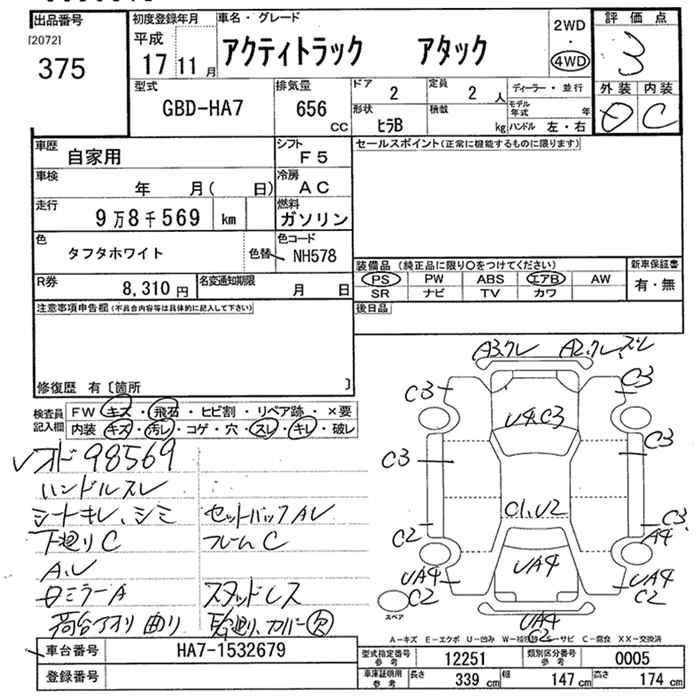 出品番号
[2072]
375
初度登録年月
平成
17 11 月
車名・グレード
アクティトラック アタック
2WD
・
4WD
評価点
3
外装 内装
D C
型式
GBD-HA7
排気量
656
CC
ドア 2
定員 2 人
形状
ヒラB
積載
kg
ディーラー・並行
モデル年式 年
ハンドル 左・右
車歴
自家用
シフト
F5
車検
年 月( 日)
冷房
AC
走行
9万8千569 km
燃料
ガソリン
色
タフタホワイト
色替
色コード
NH578
R券
8,310 円
名変通知期限
月 日
セールスポイント(正常に機能するものに限ります)
装備品(純正品に限り○をつけてください)
PS PW ABS エアB AW
SR ナビ TV カワ
新車保証書
有・無
後日品
注意事項申告欄(不具合内容等は具体的に記入して下さい)
修復歴 有〔箇所 〕
検査員記入欄
FW キズ・飛石・ヒビ割・リペア跡・×要
内装 キズ・汚レ・コゲ・穴・スレ・キレ・破レ
98569
ハンドルスレ
シートキレ、シミ セットバックAU
下廻りC フレームC
ミラーA スタッドレス
荷台アオリ曲り
A3.クレ A2.クレ
C3 C3
U4.C3
C3 C3
C1.U2
C2 C3
A4
UA4 UA4 UA4
C2 C2
UA4
C2
スペア
A-キズ E-エクボ U-凹み C-腐食 XX-交換済
車台番号
HA7-1532679
登録番号
型式指定番号 参考
12251
類別区分番号 参考
0005
車庫証明用 参考
長さ 339 cm
幅 147 cm
高さ 174 cm